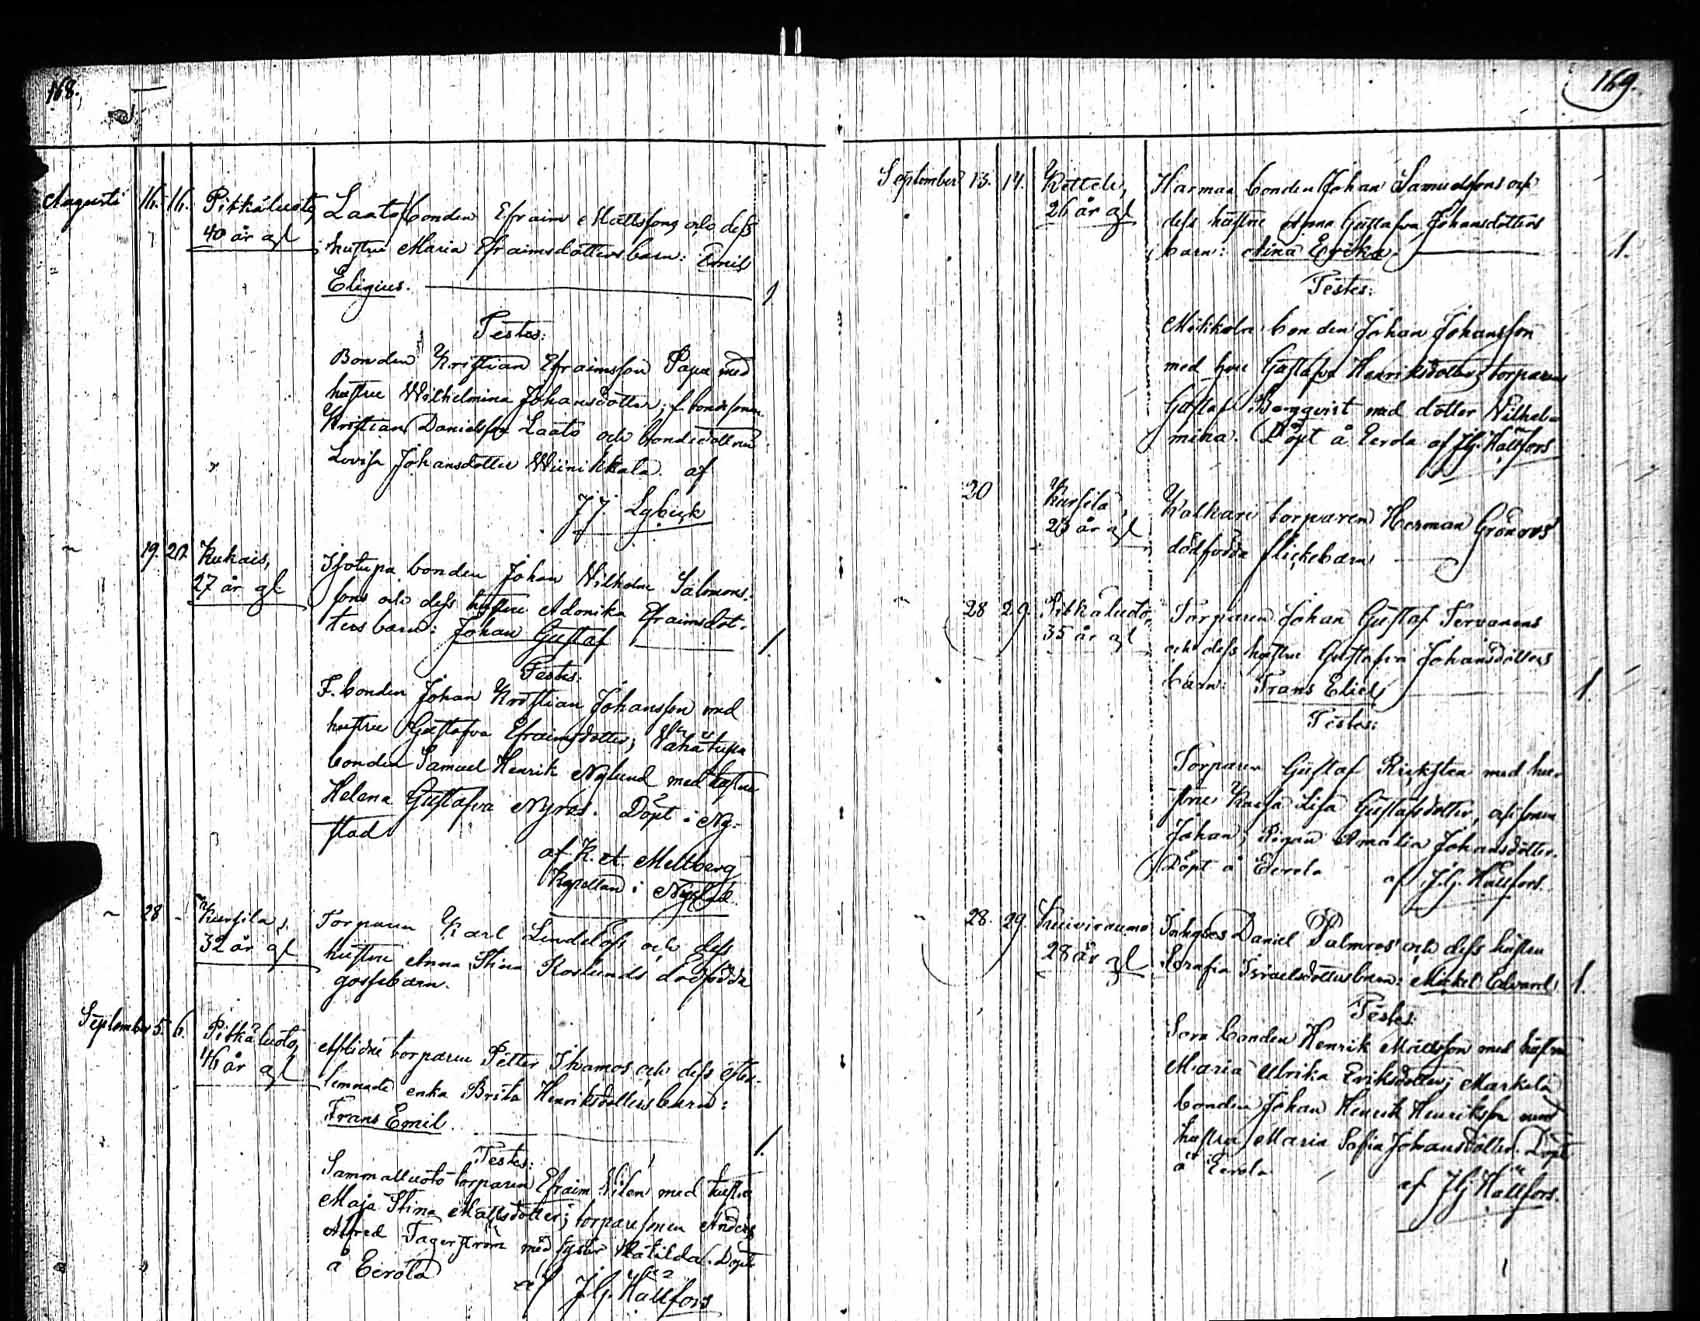 168.
Augusti 16. 16. Pitkäluoto, Laato bonden Efraim Mattssons och dess
40 år gl hustru Maria Efraimsdotters barn: Emil
Eligius. 1
Testes:
Bonden Kristian Efraimsson Papa med
hustru Wilhelmina Johansdotter; f. bondesonen
Kristian Danielsson Laato och bondedottren
Lovisa Johansdotter Wiinikkala. af
J. J. Lybeck
19. 20. Kukais, Isotupa bonden Johan Vilhelm Salomons-
27 år gl sons och dess hustru Adonika Efraimsdot-
ters barn: Johan Gustaf 1
Testes:
F. bonden Johan Kristian Johansson med
hustru Gustafva Efraimsdotter; Vähätupa
bonden Samuel Henrik Nylund med hustru
Helena Gustafva Nyroos. Döpt i Ny-
stad
af K. A. Meltberg
Kapellan i Nystad.
28 - Kursila, Torparen Karl Lindelöfs och dess
32 år gl hustru Anna Stina Roslunds dödfödda
gossebarn.
September 5. 6. Pitkäluoto, Aflidne torparen Petter Ihamos och dess efter-
46 år gl lemnade enka Brita Henriksdotters barn:
Frans Emil. 1.
Testes:
Sammalluoto torparen Efraim Vilen med hustru
Maja Stina Mattsdotter; torparesonen Anders
Alfred Fagerström med syster Matilda. Döpt
å Eerola af J. G. Hällfors
169.
September 13. 14. Ketteli, Harman bonden Johan Samuelssons och
26 år gl dess hustru Anna Gustafva Johansdotters
barn: Aina Erika 1.
Testes:
bonden Johan Johansson
med hustru Gustafva Henriksdotter; torparen
Gustaf Bergqvist med dotter Vilhel-
mina. Döpt å Eerola af J. G. Hällfors
20 Kursila, torparen Herman Grönroos
23 år gl dödfödda flickebarn
28 29. Pitkäluoto, Torparen Johan Gustaf Tervanens
35 år gl och dess hustru Gustafva Johansdotters
barn: Frans Eliel 1.
Testes:
Torparen Gustaf Rickstén med hu-
stru Kajsa Lisa Gustafsdotter, och sonen
Johan; Pigan Amalia Johansdotter.
Döpt å Eerola af J. G. Hällfors.
28. 29. Kuiviraumo Inhyses Daniel Palmroos' och dess hustru
28 år gl Serafia Israelsdotters barn: Mickel Edvard. 1.
Testes:
Sora bonden Henrik Mattsson med hustru
Maria Ulrika Eriksdotter; Markula
bonden Johan Henrik Henriksson med
hustru Maria Sofia Johansdotter. Döpt
å Eerola
af J. G. Hällfors.